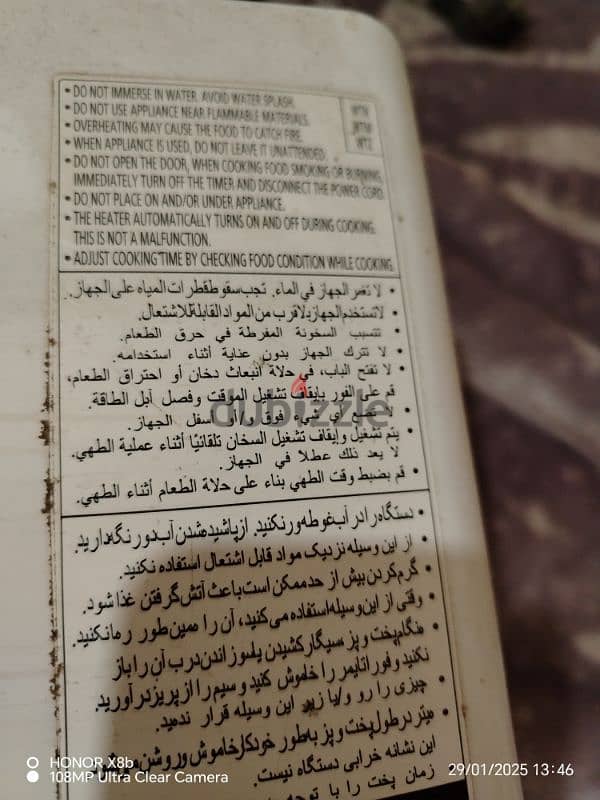 • DO NOT IMMERSE IN WATER. AVOID WATER SPLASH.
• DO NOT USE APPLIANCE NEAR FLAMMABLE MATERIALS.
• OVERHEATING MAY CAUSE THE FOOD TO CATCH FIRE.
• WHEN APPLIANCE IS USED, DO NOT LEAVE IT UNATTENDED.
• DO NOT OPEN THE DOOR, WHEN COOKING FOOD SMOKING OR BURNING,
IMMEDIATELY TURN OFF THE TIMER AND DISCONNECT THE POWER CORD.
• DO NOT PLACE ON AND/OR UNDER APPLIANCE.
• THE HEATER AUTOMATICALLY TURNS ON AND OFF DURING COOKING.
THIS IS NOT A MALFUNCTION.
• ADJUST COOKING TIME BY CHECKING FOOD CONDITION WHILE COOKING.
• لا تغمر الجهاز في الماء. تجب سقوط قطرات المياه على الجهاز.
• لا تستخدم الجهاز بالاقرب من المواد القابلة للاشتعال.
• تتسبب السخونة المفرطة في حرق الطعام.
• لا تترك الجهاز بدون عناية أثناء استخدامه.
• لا تفتح الباب، في حالة انبعاث دخان أو احتراق الطعام،
قم على الفور بإيقاف تشغيل الموقت وفصل
الطاقة.
• لا تضع أي شيء فوق و/أو أسفل الجهاز.
• يتم تشغيل وإيقاف تشغيل السخان تلقائيًا أثناء عملية الطهي.
لا يعد ذلك عطلا في الجهاز.
• قم بضبط وقت الطهي بناء على حالة الطعام أثناء الطهي.
• دستگاه را در آب غوطه ور نکنید. از پاشیده شدن آب دور نگه دارید.
• از این وسیله نزدیک مواد قابل اشتعال استفاده نکنید.
• گرم کردن بیش از حد ممکن است باعث آتش گرفتن غذا شود.
• وقتی از این وسیله استفاده می کنید، آن را همین طور رها نکنید.
• هنگام پخت و پز، سیگار کشیدن یا سوزاندن درب آن را باز
نکنید و فورا تایمر را خاموش کنید و سیم را از پریز در آورید.
• چیزی را رو و/یا زیر این وسیله قرار ندهید.
• هیتر در طول پخت و پز به طور خودکار خاموش و روشن
این نشانه خرابی دستگاه نیست.
زمان پخت را با توجه
dubizzle
HONOR X8b
108MP Ultra Clear Camera
29/01/2025 13:46